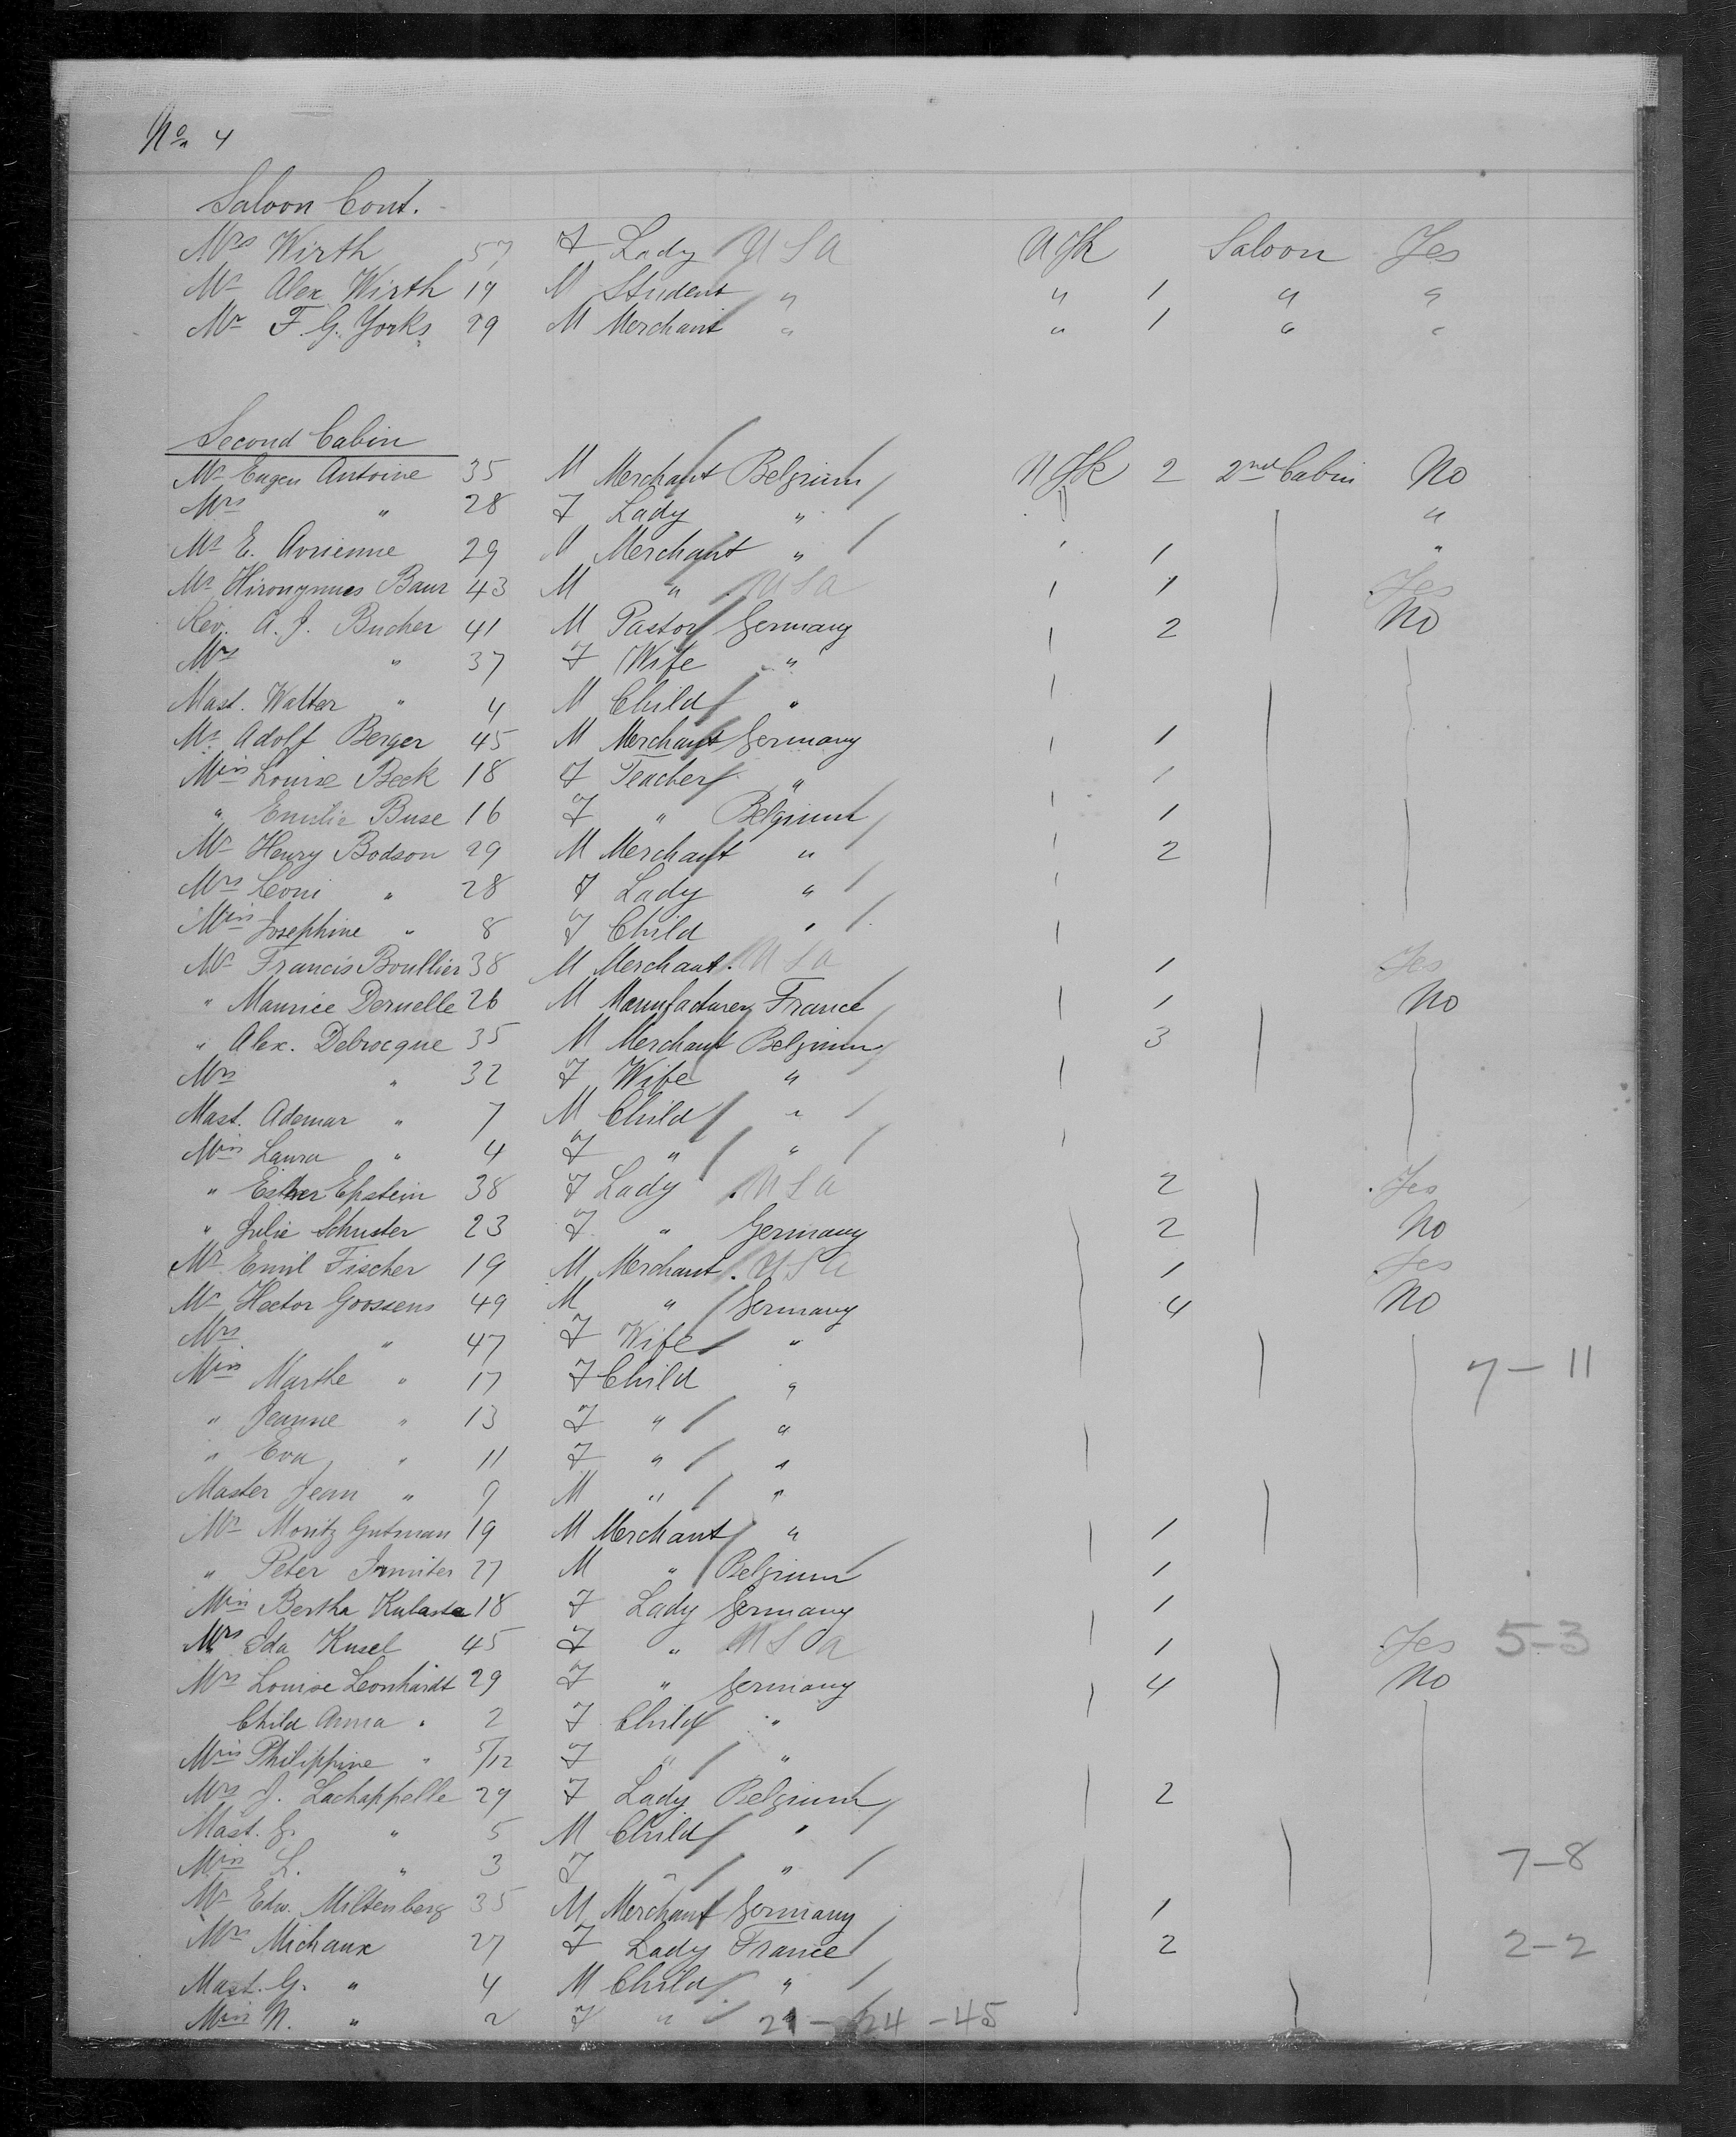 No. 4
Saloon Cont.
Mrs Wirth 57 F Lady USA Saloon Yes
Mr Alex Wirth 19 M Student " " 1 " "
Mr F. G. Yorks 29 M Merchant " " 1 " "
Second Cabin
Mr Eugen Antoine 35 M Merchant Belgium 2 2nd Cabin No
Mrs " 28 F Lady " "
Mr E. Avrienne 29 M Merchant " 1 "
Mr Hironymus Baur 43 M " USA 1 Yes
Rev. A. J. Bucher 41 M Pastor Germany 2 No
Mrs " 37 F Wife "
Mast. Walter " 4 M Child "
Mr Adolf Berger 45 M Merchant Germany 1
Miss Louise Beck 18 F Teacher " 1
" Emilie Buse 16 F " Belgium 1
Mr Henry Bodson 29 M Merchant " 2
Mrs Leoni " 28 F Lady "
Miss Josephine " 8 F Child "
Mr Francis Boullier 38 M Merchant USA 1 Yes
" Maurice Deruelle 26 M Manufacturer France 1 No
" Alex. Debrocque 35 M Merchant Belgium 3
Mrs " 32 F Wife "
Mast. Ademar " 7 M Child "
Miss Laura " 4 F " "
" Esther Epstein 38 F Lady USA 2 Yes
" Julie Schuster 23 F " Germany 2 No
Mr Emil Fischer 19 M Merchant USA 1 Yes
Mr Hector Goossens 49 M " Germany 4 No
Mrs " 47 F Wife "
Miss Marthe " 17 F Child " 7-11
" Jeanne " 13 F " "
" Eva " 11 F " "
Master Jean " 9 M " "
Mr Moritz Gutman 19 M Merchant " 1
" Peter 27 M " Belgium 1
Miss Bertha Kulasta 18 F Lady Germany 1
Mrs Ida Kusel 45 F " USA 1 Yes 5-3
Mrs Louise Leonhardt 29 F " Germany 4 No
Child Anna " 2 F Child "
Miss Philippine " 5/12 F " "
Mrs J. Lachappelle 29 F Lady Belgium 2
Mast. G. " 5 M Child "
Miss L. " 3 F " " 7-8
Mr Edw. Miltenberg 35 M Merchant Germany 1
Mrs Michaux 27 F Lady France 2 2-2
Mast. G. " 4 M Child "
Miss N. " 2 F " 21-24-45